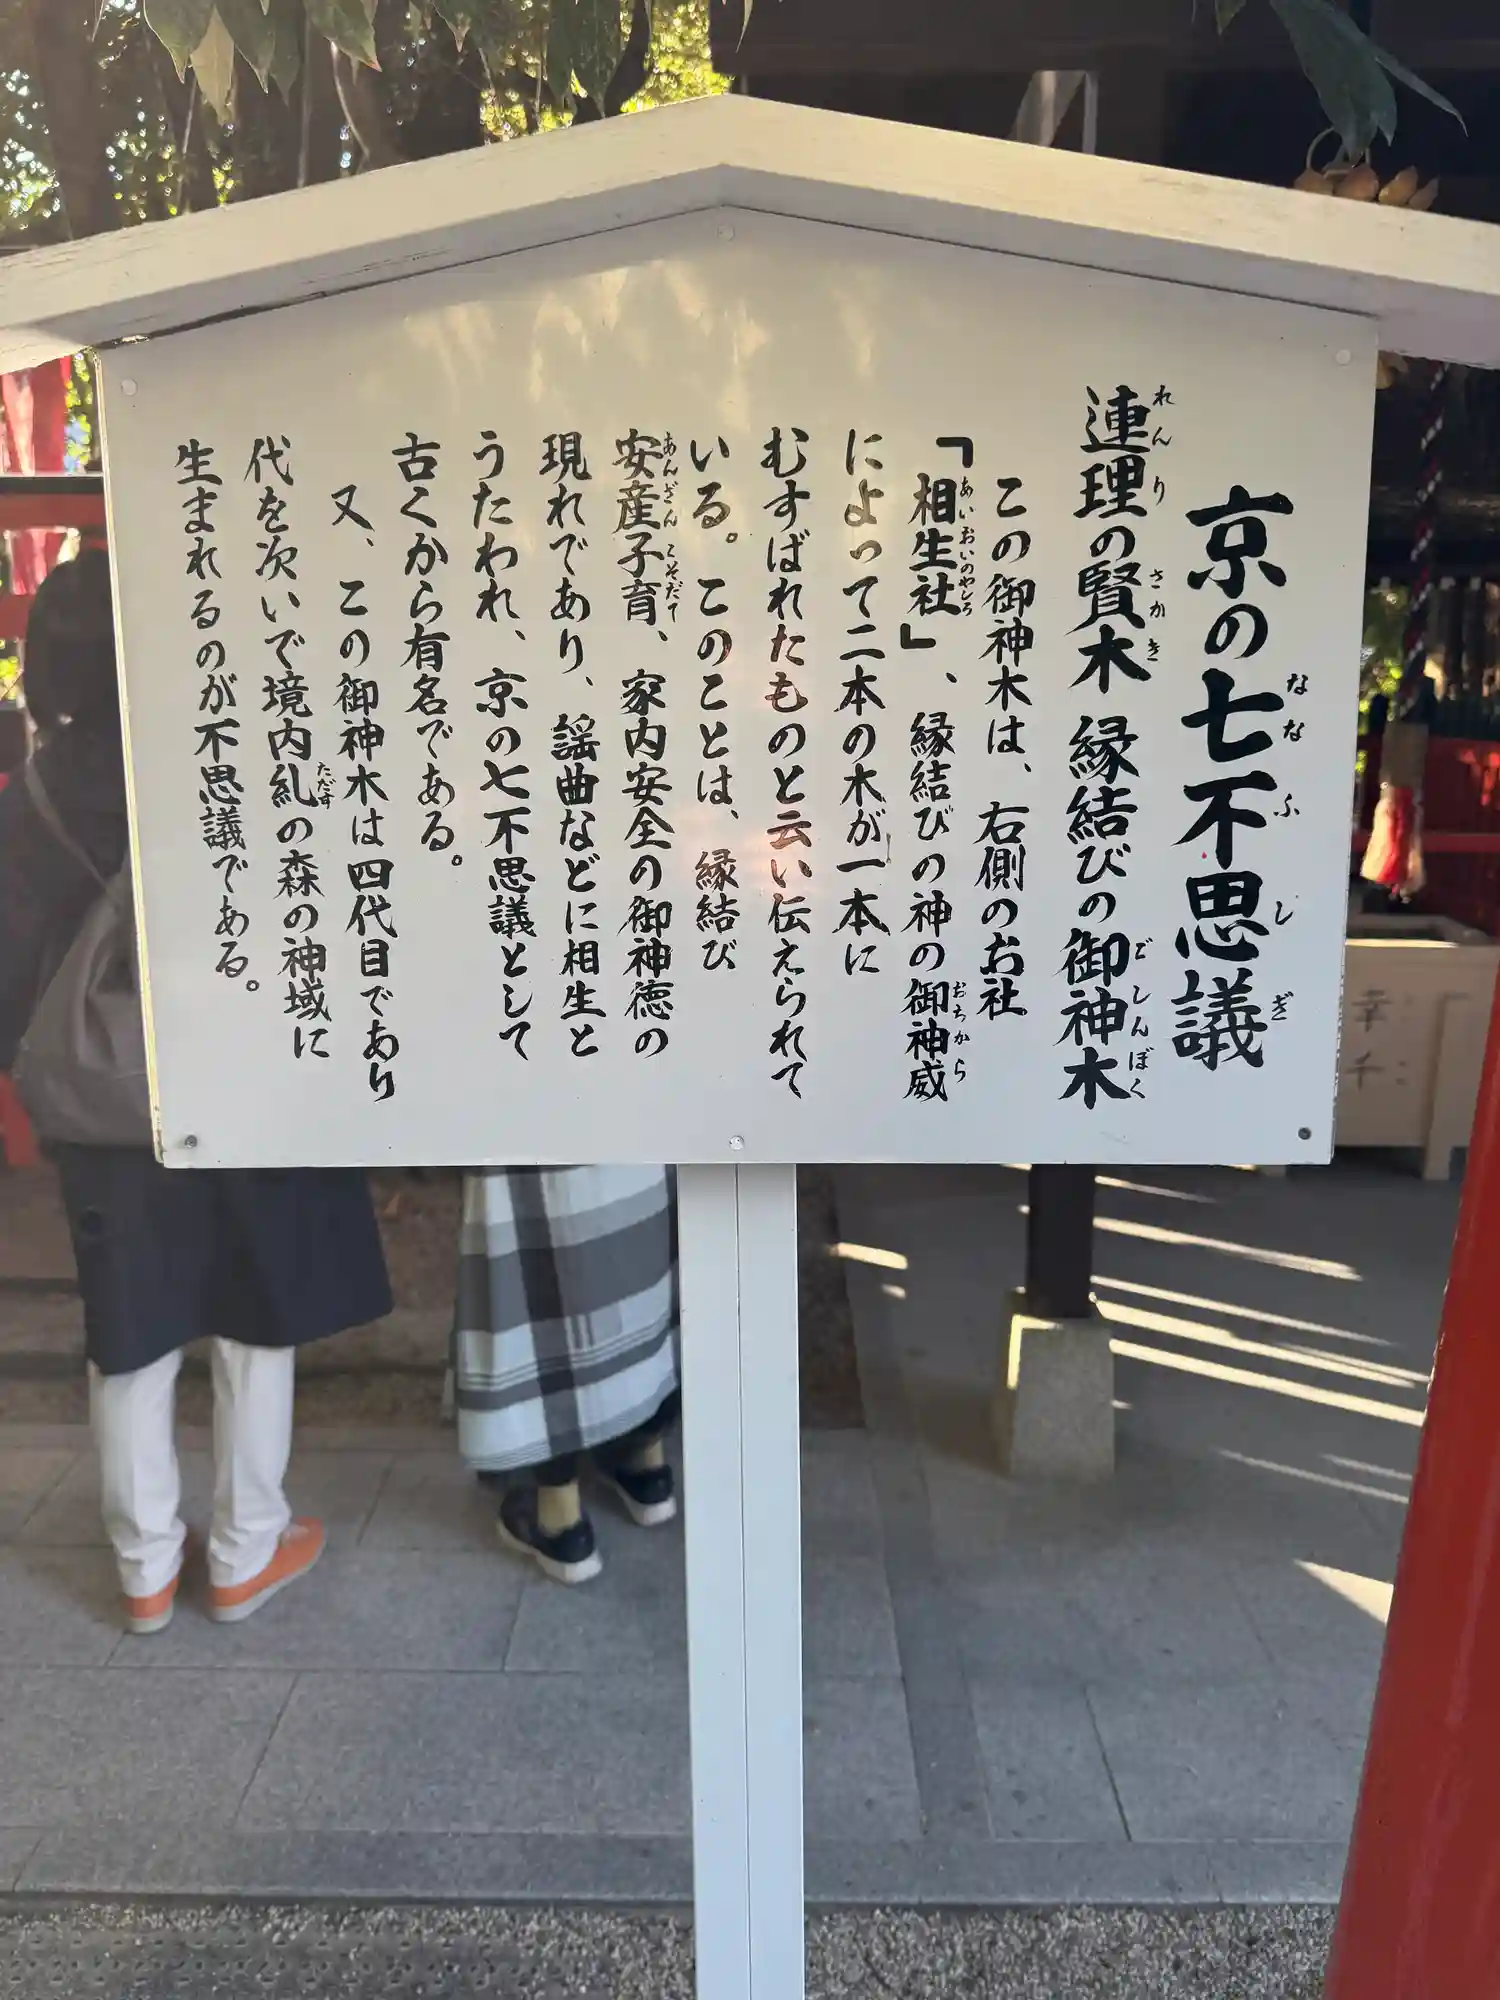 京の七不思議
連理の賢木 縁結びの御神木
この御神木は、右側のお社
「相生社」、縁結びの神の御神威
によって二本の木が一本に
むすばれたものと云い伝えられて
いる。このことは、縁結び
安産子育、家内安全の御神徳の
現れであり、謡曲などに相生と
うたわれ、京の七不思議として
古くから有名である。
又、この御神木は四代目であり
代を次いで境内糺の森の神域に
生まれるのが不思議である。